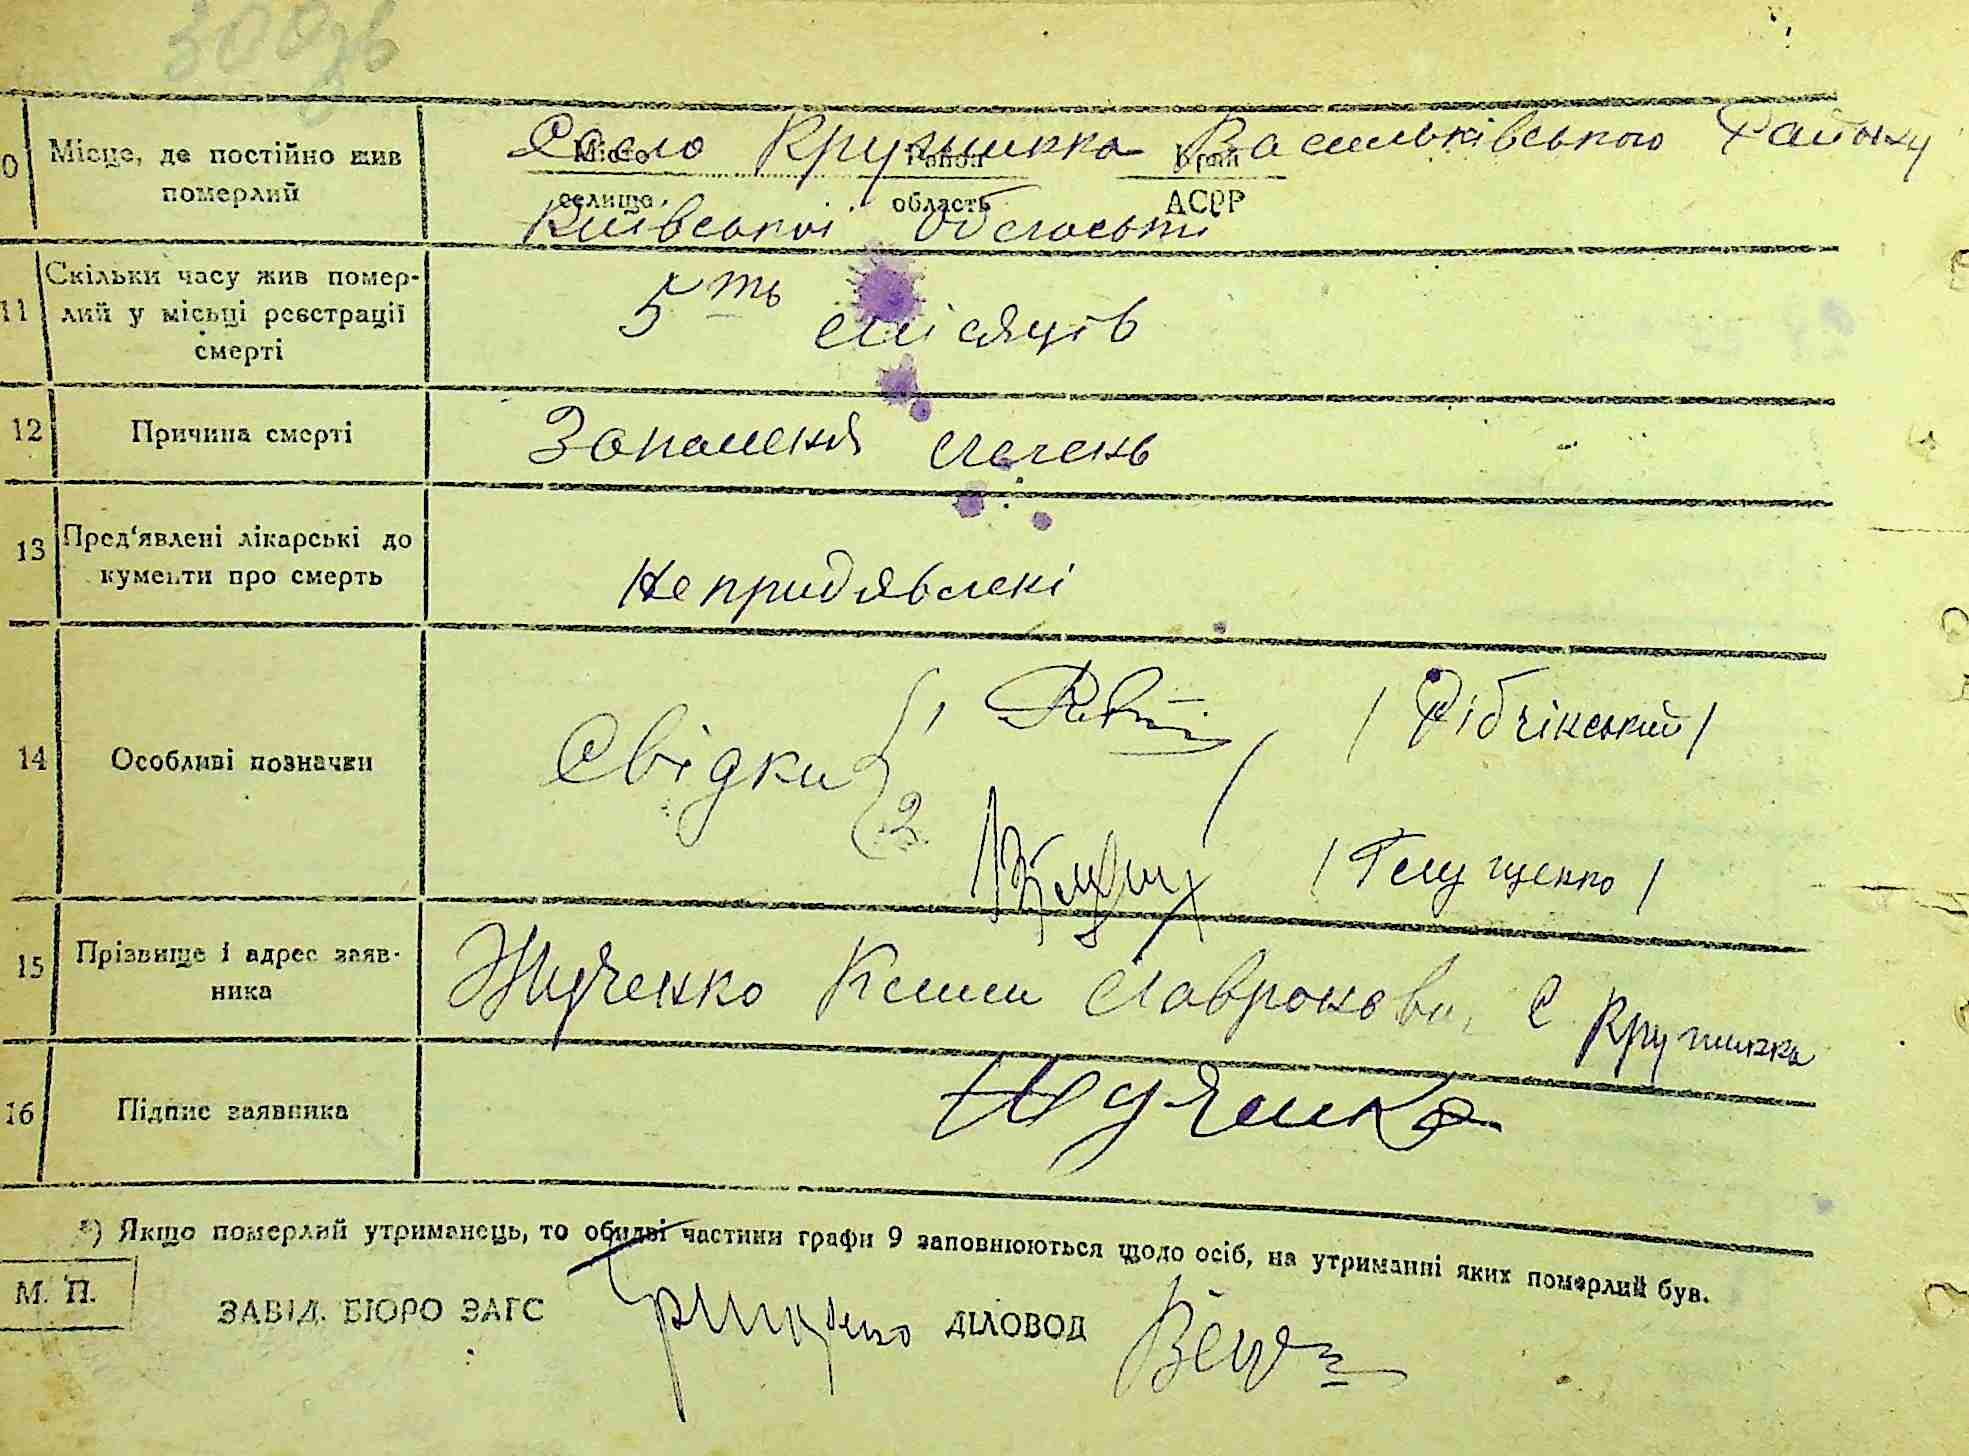 10 Місце, де постійно жив померлий
Село Кругликка Васильківського Району
Місто Район Край
селище область АСРР
Київської Області
11 Скільки часу жив помер-
лий у місьці реєстрації
смерті
5ть місяців
12 Причина смерті
Запаленя легень
13 Пред'явлені лікарські до
кументи про смерть
Не придявлені
14 Особливі позначки
Свідки 1 / Рібчінський /
2 / Глущенко /
15 Прізвище і адрес заяв-
ника
С.
16 Підпис заявника
*) Якщо померлий утриманець, то обидві частини графи 9 заповнюються щодо осіб, на утриманні яких померлий був.
М. П.
ЗАВІД. БЮРО ЗАГС ДІЛОВОД